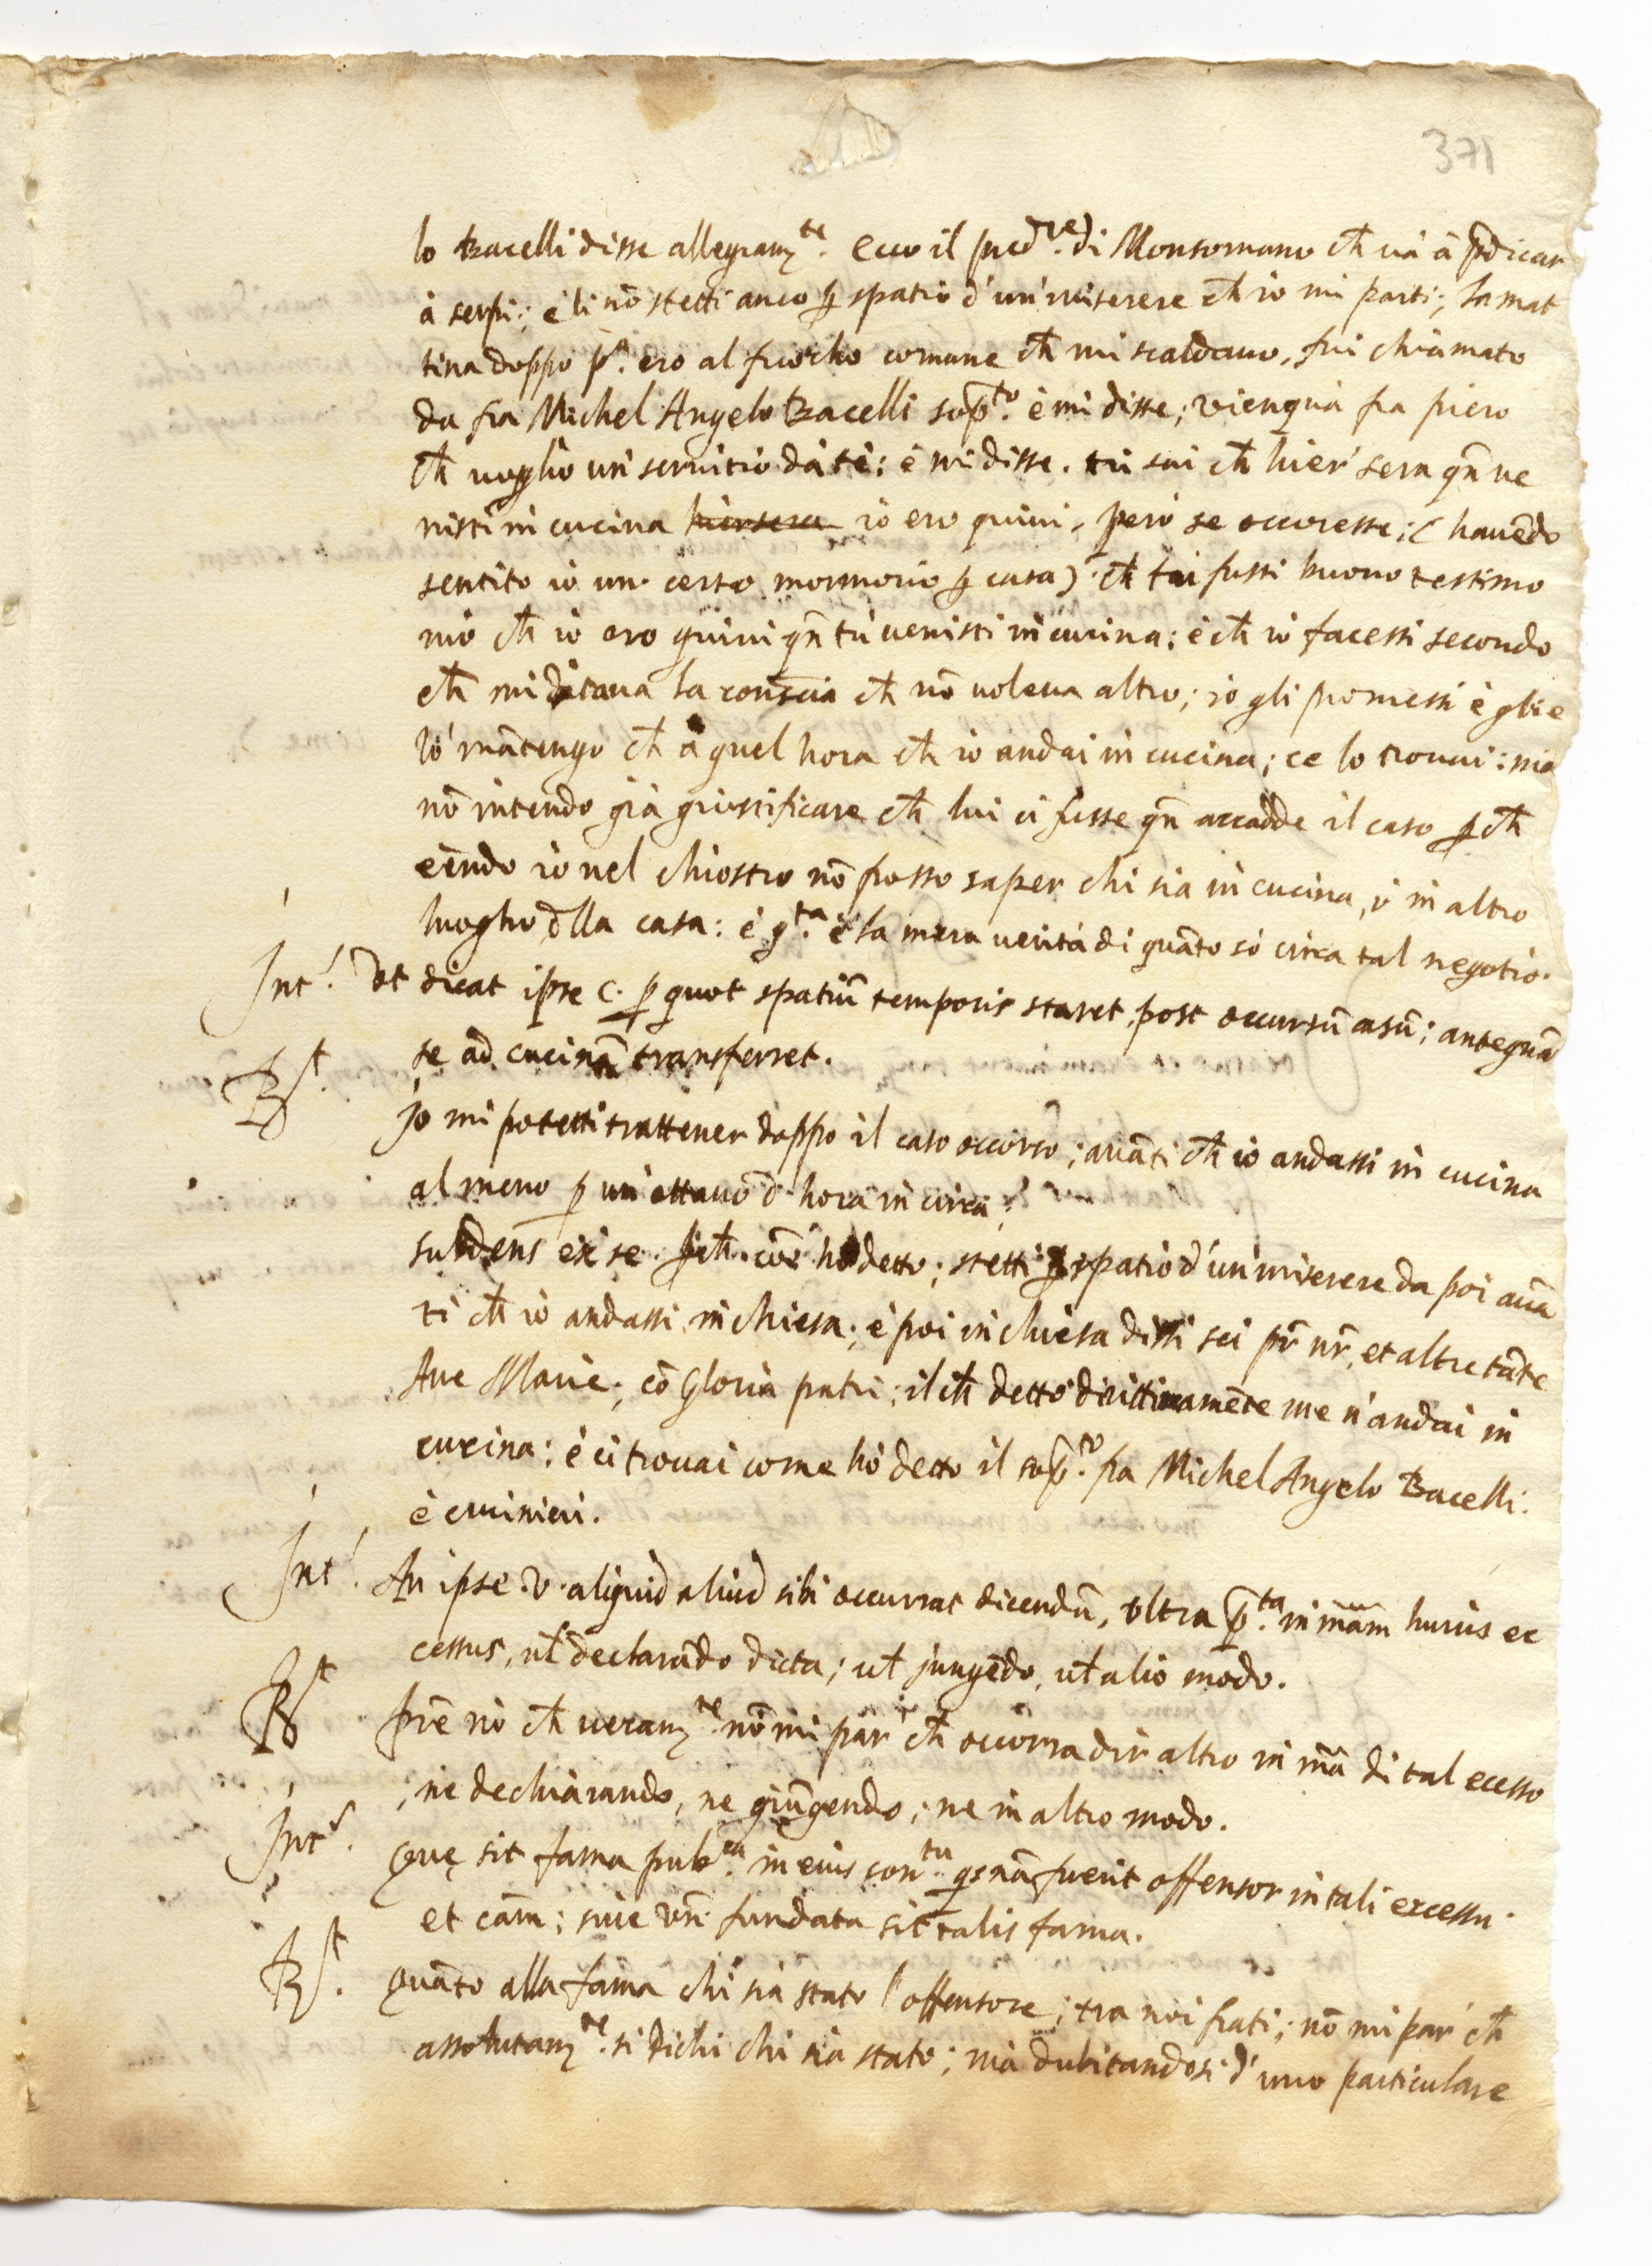 371
lo Bacelli disse allegramte. ecco il pred.re di Monsomano ch̃ uà à p̄dicar
à serpi; è li nō stetti anco ꝑ spatio d'un' miserere ch̃ io mi parti; la mat
tina doppo p.a ero al fuocho comune ch̃ mi scaldauo, fui chiamato
da fra Michel Angelo Bacelli sop̄.to è mi disse; vienquà fra piero
ch̃ uoglio un' seruitio da tè: è mi disse. tu sai ch̃ hier' sera qñ ue
nisti in cucina hiersera io ero quiui, però se occoresse; (hauēdo
sentito io un certo mormorio ꝑ casa) ch̃ tu fussi buono testimo
nio ch̃ io ero quiui qñ tù uenisti in cucina: è ch̃ io facessi secondo
ch̃ mi ditaua la conscia ch̃ nō uoleua altro; io gli promessi è glie
lò mātengo ch̃ à quel hora ch̃ io andai in cucina; ce lo trouai: ma
nō intendo già giustificare ch̃ lui ci fusse qñ accadde il caso ꝑch̃
eēndo io nel chiostro nō posso saper chi sia in cucina, ò in altro
luogho d̄lla casa: è q.ta è la mera uerità di quāto sò circa tal negotio.
Int! Vt dicat ipse C. ꝑ quot spatiū temporis staret, post occursū casū; antequā
se ad cucinā transferret.
Rt. Jo mi potetti trattener doppo il caso occorso; auāti ch̃ io andassi in cucina
al meno ꝑ un' ottauo d' hora in circa;
subdens ex se. ꝑch̃. coē hò detto; stetti ꝑ spatio d'un miserere da poi auā
ti ch̃ io andassi in chiesa; è poi in chiesa dissi sei pr̄ nr̄, et altre tāte
Aue Marie; cō Gloria patri; il ch̃ detto dirittamēte me n'andai in
cucina: è ci trouai come hò detto il sop̄.to fra Michel Angelo Bacelli.
è cucinieri.
Int! An ipse .V. aliquid aliud sibi occurrat dicendū, vltra p̄.ta in mām huius ec
cessus, ut̄ declarādo dicta; ut̄ jungēdo, ut̄ alio modo.
Rt prē nò ch̃ veramte nō mi par' ch̃ occorra dir altro in mā di tal ecesso
; nè dechiarando, ne giūngendo; ne in altro modo.
Intr. Quę sit fama pub.ca in eius con.tu qs nā fuerit offensor in tali excessu.
et cām; siue vñ. fundata sit talis fama.
Rt. Quāto alla fama chi sia stato l'offensore; tra noi frati; nō mi par' ch̃
assolutamte si dichi chi sia stato; mà dubitandosi d' uno particulare